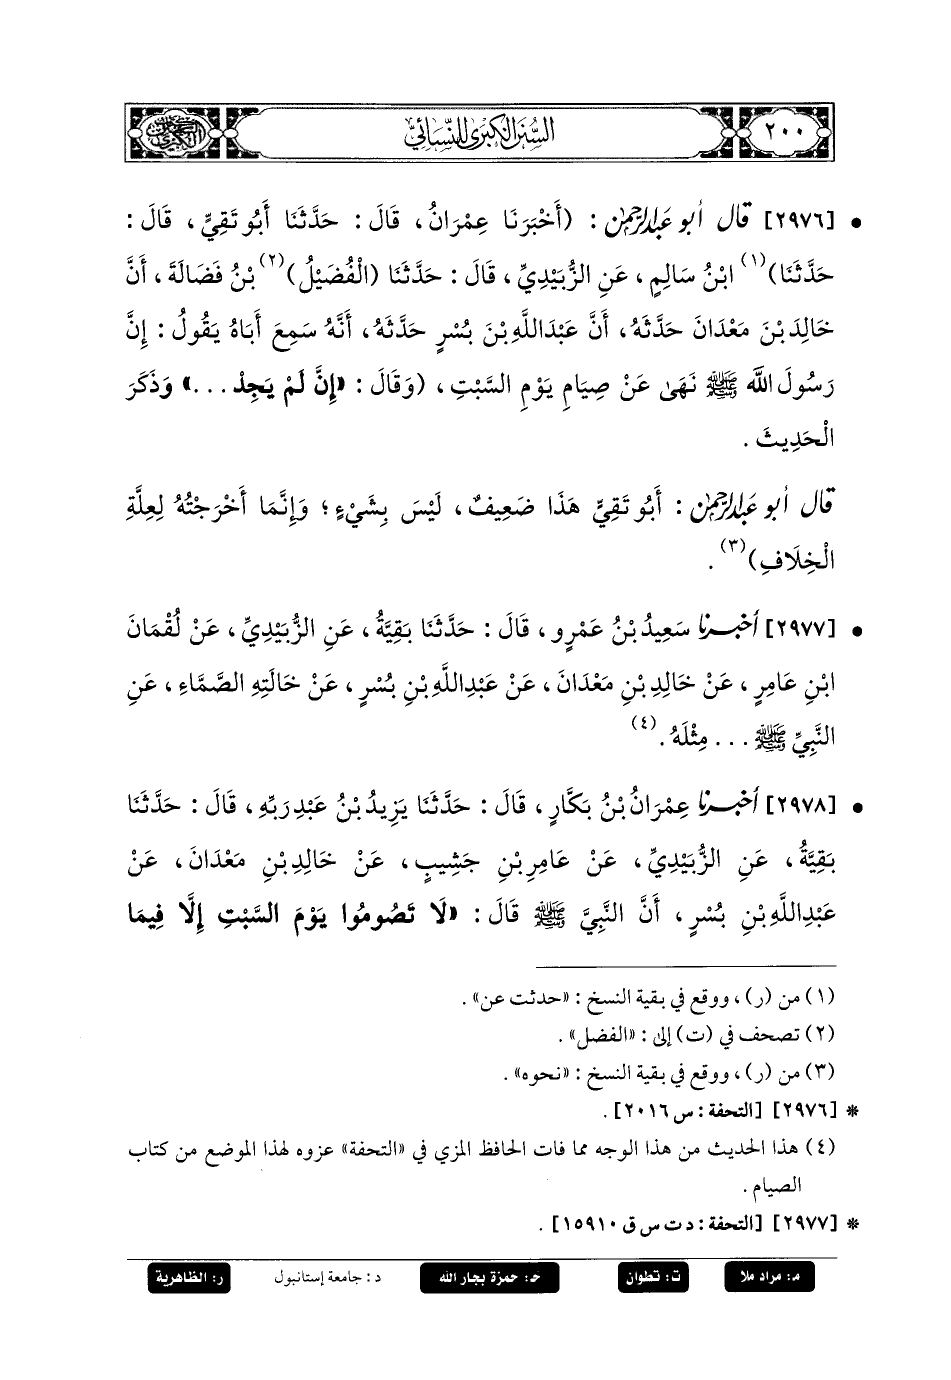 ٢٠٠ السُّنَنُ الكُبْرَى لِلنَّسَائِيّ
• [٢٩٧٦] قال أبو عبدالرحمن : (أَخْبَرَنَا عِمْرَانُ، قَالَ : حَدَّثَنَا أَبُو تَقِيٍّ، قَالَ :
حَدَّثَنَا)(١) ابْنُ سَالِمٍ، عَنِ الزُّبَيْدِيِّ، قَالَ : حَدَّثَنَا (الْفُضَيْلُ)(٢) بْنُ فَضَالَةَ، أَنَّ
خَالِدَ بْنَ مَعْدَانَ حَدَّثَهُ، أَنَّ عَبْدَاللَّهِ بْنَ بُسْرٍ حَدَّثَهُ، أَنَّهُ سَمِعَ أَبَاهُ يَقُولُ : إِنَّ
رَسُولَ اللَّه ﷺ نَهَى عَنْ صِيَامِ يَوْمِ السَّبْتِ، (وَقَالَ : «إِنْ لَمْ يَجِدْ . . .» وَذَكَرَ
الْحَدِيثَ .
قال أبو عبدالرحمن : أَبُو تَقِيٍّ هَذَا ضَعِيفٌ، لَيْسَ بِشَيْءٍ؛ وَإِنَّمَا أَخْرَجْتُهُ لِعِلَّةِ
الْخِلَافِ)(٣) .
• [٢٩٧٧] أخبرنا سَعِيدُ بْنُ عَمْرٍو، قَالَ : حَدَّثَنَا بَقِيَّةُ، عَنِ الزُّبَيْدِيِّ، عَنْ لُقْمَانَ
ابْنِ عَامِرٍ، عَنْ خَالِدِ بْنِ مَعْدَانَ، عَنْ عَبْدِاللَّهِ بْنِ بُسْرٍ، عَنْ خَالَتِهِ الصَّمَّاءِ، عَنِ
النَّبِيِّ ﷺ . . . مِثْلَهُ .(٤)
• [٢٩٧٨] أخبرنا عِمْرَانُ بْنُ بَكَّارٍ، قَالَ : حَدَّثَنَا يَزِيدُ بْنُ عَبْدِ رَبِّهِ، قَالَ : حَدَّثَنَا
بَقِيَّةُ، عَنِ الزُّبَيْدِيِّ، عَنْ عَامِرِ بْنِ جَشِيبٍ، عَنْ خَالِدِ بْنِ مَعْدَانَ، عَنْ
عَبْدِاللَّهِ بْنِ بُسْرٍ، أَنَّ النَّبِيَّ ﷺ قَالَ : «لَا تَصُومُوا يَوْمَ السَّبْتِ إِلَّا فِيمَا
(١) من (ر)، ووقع في بقية النسخ : «حدثت عن» .
(٢) تصحف في (ت) إلى : «الفضل» .
(٣) من (ر)، ووقع في بقية النسخ : «نحوه» .
* [٢٩٧٦] [التحفة : س ٢٠١٦] .
(٤) هذا الحديث من هذا الوجه مما فات الحافظ المزي في «التحفة» عزوه لهذا الموضع من كتاب
الصيام .
* [٢٩٧٧] [التحفة : د ت س ق ١٥٩١٠] .
م: مراد ملا ت: تطوان حـ: حمزة بجار الله د: جامعة إستانبول ر: الظاهرية